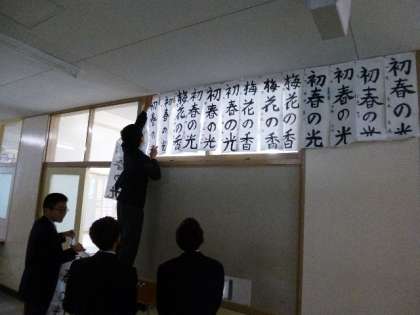 初春の光
初春の光
初春の光
初春の光
梅花の香
梅花の香
梅花の香
初春の光
初春の光
初春の光
梅花の香
初春の光
初春の光